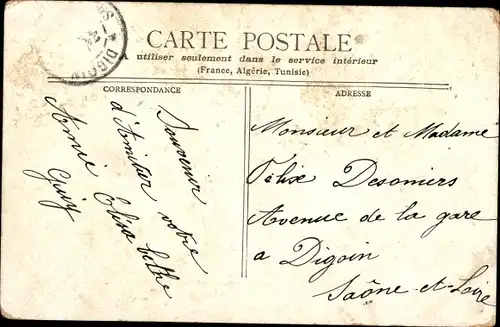 CARTE POSTALE
A utiliser seulement dans le service intérieur
(France, Algérie, Tunisie)
CORRESPONDANCE
ADRESSE
DIGOIN
Souvenir
d'Amitier votre
Amie Elisa bethe
Guy
Monsieur et Madame
Félix Desomiers
Avenue de la gare
a Digoin
Saône-et-Loire